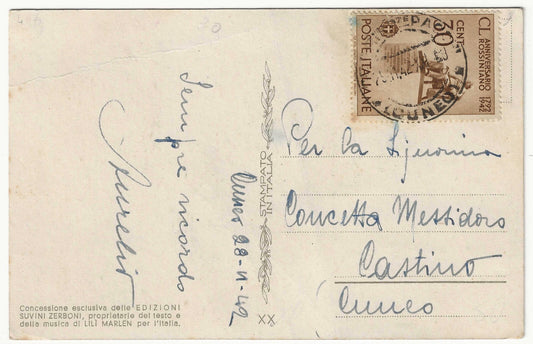 30
Sempre ricordo
Aurelio
Cuneo 28-11-42
STAMPATO
IN ITALIA
XX
Concessione esclusiva delle EDIZIONI
SUVINI ZERBONI, proprietarie del testo e
della musica di LILÌ MARLEN per l'Italia.
CL ANNIVERSARIO
ROSSINIANO
1792
1942
30
CENT.
POSTE ITALIANE
(CUNEO)
Per la Signorina
Concetta Messidoro
Castino
Cuneo